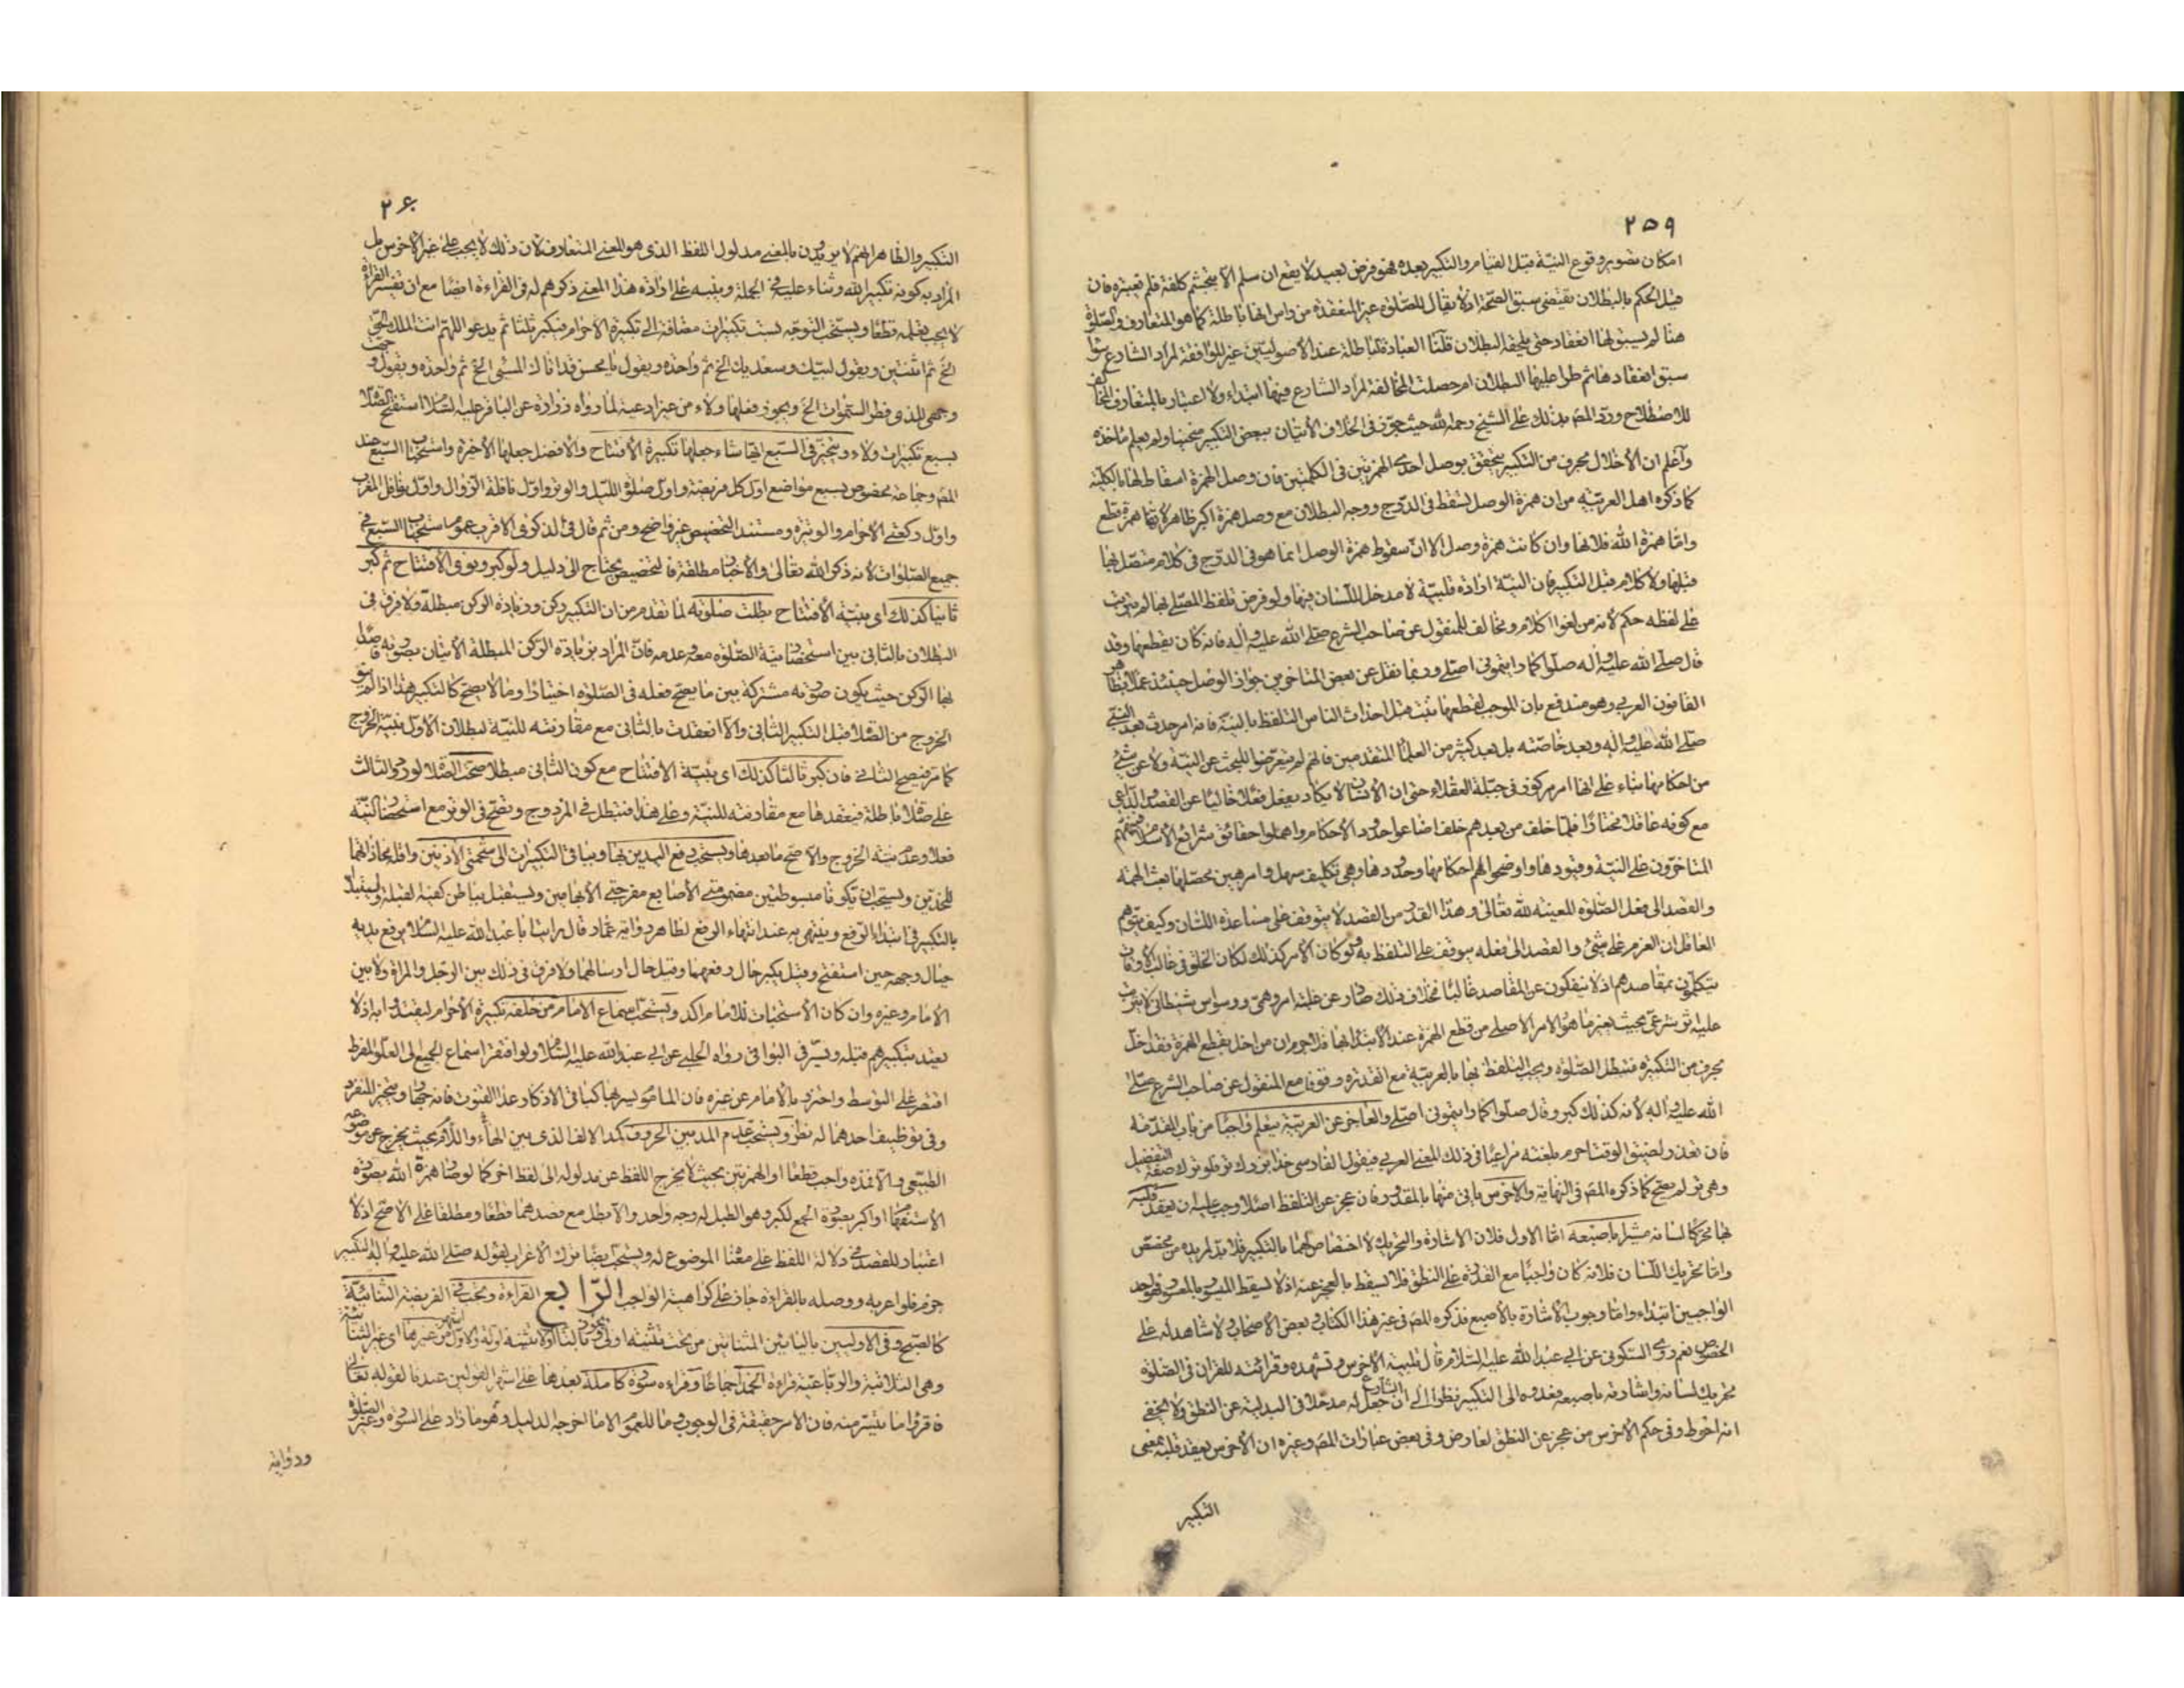 ٢٥٩
امكان تصوير وقوع النيّة قبل القيام والتكبير بعده فهو فرض بعيد لا يقع ان سلم الا بتجشّم كلفة فلم نعتبره فان
قيل الحكم بالبطلان يقتضى سبق الصّحّة اذ لا يقال للصّلوة غير المنعقدة من راس انها باطلة كما هو المتعارف والصّلوة
هنا لم يسبق لها انعقاد حتى يلحقه البطلان قلنا العبادة الباطلة عند الاصوليّين غير الموافقة لمراد الشارع سوا
سبق انعقادها ثم طرأ عليها البطلان ام حصلت المخالفة لمراد الشارع فيها ابتداء ولا اعتبار بالمتعارف المخالف
للاصطلاح وردّ المصـ بذلك على الشيخ رحمه الله حيث جوّز فى الخلاف الاتيان ببعض التكبير منحنيا ولم يعلم ماخذه
وآعلم ان الاخلال بحرف من التكبير يتحقق بوصل احدى الهمزتين فى الكلمتين فان وصل الهمزة اسقاط لها بالكليّة
كما ذكره اهل العربيّة من ان همزة الوصل تسقط فى الدّرج ووجه البطلان مع وصل همزة اكبر ظاهر لانها همزة قطع
وامّا همزة الله فلانها وان كانت همزة وصل الا انّ سقوط همزة الوصل انما هو فى الدرج فى كلام متصل بها
قبلها ولا كلام قبل التكبير فان النيّة ارادة قلبيّة لا مدخل للّسان فيها ولو فرض تلفظ المصلى بها لم يترتب
على لفظه حكم لانه من لغو الكلام ومخالف للمنقول عن صاحب الشرع صلى الله عليه واله فانه كان يقطعها وقد
قال صلى الله عليه واله صلّوا كما رايتمونى اصلى وربما نقل عن بعض المتاخرين جواز الوصل حينئذ عملا بظاهر
القانون العربى وهو مندفع بان الموجب لقطعها ثبت قبل احداث الناس التلفظ بالنيّة فانه امر حدث بعد النبىّ
صلى الله عليه واله وبعد خاصّته بل بعد كثير من العلماء المتقدمين فانهم لم يتعرّضوا للبحث عن النيّة ولا عن شئ
من احكامها بناء على انها امر مركوز فى جبلّة العقلاء حتى ان الانسان لا يكاد يفعل فعلا خاليا عن القصد والداعى
مع كونه عاقلا مختارا فلمّا خلف من بعدهم خلف اضاعوا حدود الاحكام واهملوا حقائق شرائع الاسلام
المتاخّرون على النيّة وقيودها واوضحوا لهم احكامها وحدودها وهى تكليف سهل وامر هيّن بحصلها بعث الهمّة
والقصد الى فعل الصّلوة المعينة لله تعالى وهذا القدر من القصد لا يتوقف على مساعدة اللسان وكيف يتوهم
العاقل ان العزم على شئ والقصد الى فعله موقوف على التلفظ به ولو كان الامر كذلك لكان الخلق فى غالب الاوقات
يتكلّمون بمقاصدهم اذ لا ينفكون عن المقاصد غالبا بخلاف ذلك صار عن غلبة امر وهمىّ ووسواس شيطانى لا يترتب
عليه اثر شرعىّ بحيث يغير ما هو الامر الاصلى من قطع الهمزة عند الابتداء بها فلا جرم ان من اخل بقطع الهمزة فقد اخلّ
بحرف من التكبيرة فتبطل الصّلوة ويجب التلفظ بها بالعربيّة مع القدرة وقوفا مع المنقول عن صاحب الشرع صلى
الله عليه واله لانه كذلك كبر وقال صلّوا كما رايتمونى اصلى والعاجز عن العربيّة يتعلم واجبا من باب المقدّمة
فان تعذر ولضيق الوقت احرم بلغته مراعيا فى ذلك المعنى العربى فيقول الفارسى خدا بزرك تر فلو ترك صيغة التفضيل
وهى تر لم يصحّ كما ذكره المصـ فى النهاية والاخرس ياتى منها بالمقدور فان عجز عن التلفظ اصلا وجب عليه ان يعقد قلبه
بها محركا لسانه مشيرا باصبعه امّا الاول فلان الاشارة والتحريك لا اختصاص لهما بالتكبير فلا بدّ لمريده من مخصص
وامّا تحريك اللسان فلانه كان واجبا مع القدرة على النطق فلا يسقط بالعجز عنه اذ لا يسقط الميسور بالمعسور وهو احد
الواجبين ابتداء وامّا وجوب الاشارة بالاصبع فذكره المصـ فى غير هذا الكتاب وبعض الاصحاب ولا شاهد له على
الخصوص نعم روى السكونى عن ابى عبد الله عليه السّلام قال تلبية الاخرس وتشهده وقرائته للقران فى الصّلوة
تحريك لسانه واشارته باصبعه فعدوه الى التكبير نظرا الى ان الشارع جعل له مدخلا فى البدلية عن النطق ولا يخفى
انه احوط وفى حكم الاخرس من عجز عن النطق لعارض وفى بعض عبارات المصـ وغيره ان الاخرس يعقد قلبه بمعنى
التكبير
٢۶٠
التكبير والظاهر انهم لا يريدون بالمعنى مدلول اللفظ الذى هو المعنى المتعارف لان ذلك لا يجب على غير الاخرس بل
المراد به كونه تكبير الله وثناء عليه فى الجملة وينبه على ارادة هذا المعنى ذكرهم له فى القراءة ايضا مع ان تفسير القراءة
لا يجب تعلمه قطعا ويستحب التوجّه بست تكبيرات مضافة الى تكبيرة الاحرام يكبر ثلثا ثم يدعو اللهم انت الملك الحقّ
الخ ثم اثنتين ويقول لبّيك وسعديك الخ ثم واحدة ويقول يا محسن قد اتاك المسئ الخ ثم واحدة ويقول وجّهت
وجهى للذى فطر السّموات الخ ويجوز فعلها ولاء من غير ادعية لما رواه زرارة عن الباقر عليه السّلام استفتح الصّلاة
بسبع تكبيرات ولاء ويتخيّر فى السّبع ايّها شاء جعلها تكبيرة الافتتاح والافضل جعلها الاخيرة واستحباب السّبع عند
المصـ وجماعة مخصوص بسبع مواضع اول كل فريضة واول صلوة الليل والوتر واول نافلة الزّوال واوّل نوافل المغرب
واوّل ركعتى الاحرام والوتيرة ومستند التخصيص غير واضح ومن ثم قال فى الذكرى الاقرب عموم استحباب السّبع فى
جميع الصّلوات لانه ذكر الله تعالى والاخبار مطلقة فالتخصيص يحتاج الى دليل ولو كبر ونوى الافتتاح ثم كبر
ثانيا كذلك اى بنيّة الافتتاح بطلت صلوته لما تقدم من ان التكبير ركن وزيادة الركن مبطلة ولا فرق فى
البطلان بالثانى بين استحضار نية الصّلوة معه وعدمه فانّ المراد بزيادة الركن المبطلة الاتيان بصورته قاصدا
بها الركن حيث يكون صورته مشتركة بين ما يصحّ فعله فى الصّلوة اختيارا وما لا يصحّ كالتكبير هذا اذا لم ينو
الخروج من الصّلاة قبل التكبير الثانى والّا انعقدت بالثانى مع مقارنته للنيّة لبطلان الاوّل بنيّة الخروج
كما مرّ فيصح الثانى فان كبر ثالثا كذلك اى بنيّة الافتتاح مع كون الثانى مبطلا صحّت الصّلاة لورود الثالث
على صلاة باطلة فيعقدها مع مقارنته للنيّة وعلى هذا فتبطل فى المزدوج وتصحّ فى الوتر مع استحضار النيّة
فعلا وعدم نيّة الخروج والّا صحّ ما بعدها ويستحب رفع اليدين بها وبباقى التكبيرات الى شحمتى الاذنين واقله محاذاتهما
للخدّين ويستحب ان تكونا مبسوطتين مضمومتى الاصابع مفرجتى الابهامين ويستقبل بباطن كفيه القبلة وليبتدأ
بالتكبير فى ابتداء الرّفع وينتهى به عند انتهاء الرفع لظاهر رواية عمّار قال رايت ابا عبد الله عليه السّلام يرفع يديه
حيال وجهه حين استفتح وقيل يكبر حال رفعهما وقيل حال ارسالهما ولا فرق فى ذلك بين الرّجل والمراة ولا بين
الامام وغيره وان كان الاستحباب للامام اكد ويستحب اسماع الامام من خلفه تكبيرة الاحرام ليقتدوا به اذ لا
يعتد بتكبيرهم قبله ويسرّ فى البواقى رواه الحلبى عن ابى عبد الله عليه السّلام ولو افتقر اسماع الجميع الى العلو المفرط
اقتصر على التوسط واحترز بالامام عن غيره فان الماموم يسر بها كباقى الاذكار وعدا القنوت فانه ويتخير المنفرد
وفى توظيف احدهما له نظر ويستحب عدم المد بين الحروف كمد الالف الذى بين الهاء واللّام بحيث يخرج عن موضوعه
الطبيعى والّا فمدّه واجب قطعا او الهمزتين بحيث لا يخرج اللفظ عن مدلوله الى لفظ اخر كما لو صار همزة الله بصورة
الاستفهام او اكبر بصورة الجمع لكبر وهو الطبل له وجه واحد والّا بطل مع قصدهما قطعا ومطلقا على الاصحّ اذ لا
اعتبار للقصد فى دلالة اللفظ على معناه الموضوع له ويستحب ايضا ترك الاعراب لقوله صلى الله عليه واله التكبير
جزم فلو اعربه ووصله بالقراءة جاز على كراهية الواجب الرّابع القراءة وتجب فى الفريضة الثنائيّة
كالصّبح وفى الاوليين باليائين المثناتين من تحت تثنية اولى ويجوز بالتاء تثنية اولة والاول اشهر من غيرها اى غير الثنائيّة
وهى الثلاثية والرباعيّة قراءة الحمد اجماعا وقراءة سورة كاملة بعدها على اشهر القولين عندنا لقوله تعالى
فاقرؤا ما تيسّر منه فان الامر حقيقة فى الوجوب وما للعموم الا ما اخرجه الدليل وهو ما زاد على السّورة وغير الصّلوة
ورواية